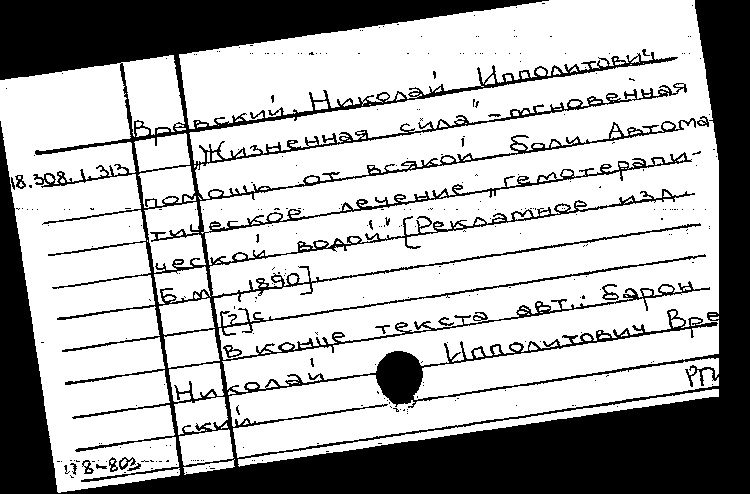 Вревский, Николай Ипполитович
18.308.1.313
„Жизненная сила" - мгновенная
помощь от всякой боли. Автома-
тическое лечение „гемотерапи-
ческой водой". [Рекламное изд.
Б.м., 1890].
[2]с.
В конце текста авт.: барон
Николай Ипполитович Врев
ский.
РПИ
178-803